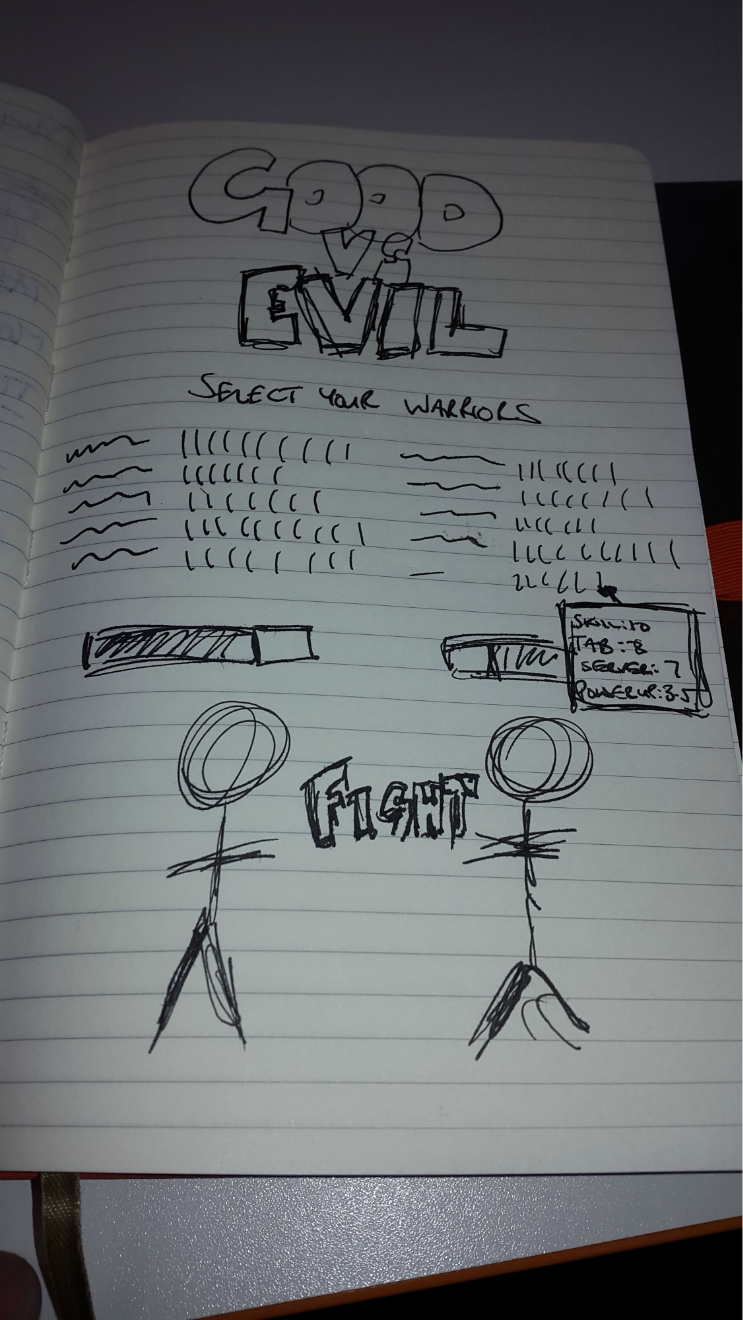 GOOD
VS
EVIL
SELECT YOUR WARRIORS
SKILL:10
TAB:8
SERVER:7
POWERUP:3.5
FIGHT